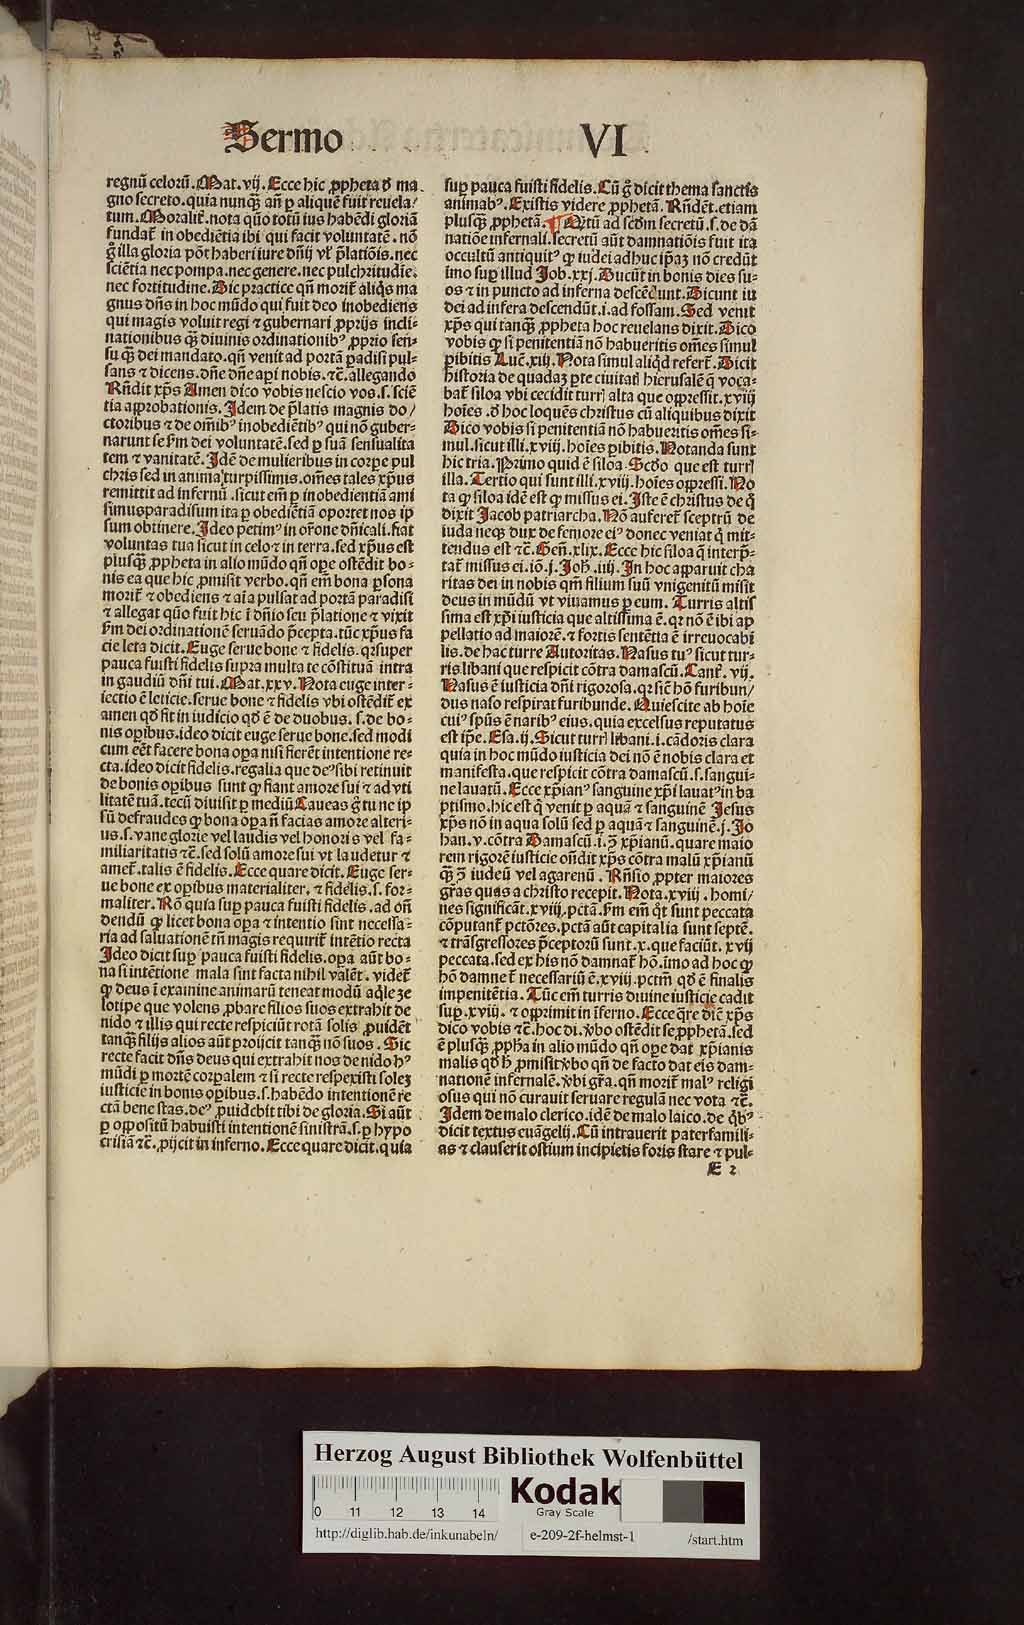 Sermo VI
regnū celorū. Mat. vij. Ecce hic ꝓpheta đ ma
gno secreto. quia nunqȝ añ ꝑ aliquē fuit reuela/
tum. Moralit̃. nota qūo totū ius habēdi gloriā
fundat̃ in obediētia ibi qui facit voluntatē. nō
g̊ illa gloria pōt haberi iure dñij vl̕ p̃latiōis. nec
sciētia nec pompa. nec genere. nec pulchritudīe.
nec fortitudine. Dic practice qñ morit̃ aliq̇s ma
gnus dñs in hoc mūdo qui fuit deo inobediens
qui magis voluit regi ⁊ gubernari ꝓprijs incli⸗
nationibus qȝ diuinis ordinationibꝰ ꝓprio sen⸗
su qȝ dei mandato. qñ venit ad portā ꝑadisi pul⸗
sans ⁊ dicens. dñe dñe aꝑi nobis. ⁊c̃. allegando
Rñdit xp̄s Amen dico vobis nescio vos. s. sciē
tia approbationis. Idem de p̃latis magnis do/
ctoribus ⁊ de om̄ibꝰ inobediētibꝰ qui nō guber⸗
narunt se ẜm dei voluntatē. sed ꝑ suā sensualita
tem ⁊ vanitatē. Idē de mulieribus in corꝑe pul
chris sed in anima turpissimis. om̄es tales xp̄us
remittit ad infernū. sicut em̄ ꝑ inobedientiam ami
simus paradisum ita ꝑ obediētiā oportet nos ip
sum obtinere. Ideo petimꝰ in or̄one dñicali. fiat
voluntas tua sicut in celo ⁊ in terra. sed xp̄us est
plusqȝ ꝓpheta in alio mūdo qñ oꝑe ostēdit bo⸗
nis ea que hic ꝓmisit verbo. qñ em̄ bona ꝑsona
morit̃ ⁊ obediens ⁊ aīa pulsat ad portā paradisi
⁊ allegat qūo fuit hic ī dñio seu p̃latione ⁊ vixit
ẜm dei ordinationē seruādo p̃cepta. tūc xp̄us fa
cie leta dicit. Euge serue bone ⁊ fidelis. qꝛ super
pauca fuisti fidelis supra multa te cōstituā intra
in gaudiū dñi tui. Mat. xxv. Nota euge inter⸗
iectio ē leticie. serue bone ⁊ fidelis vbi ostēdit̃ ex
amen qđ fit in iudicio qđ ē de duobus. s. de bo⸗
nis oꝑibus. ideo dicit euge serue bone. sed modi
cum eēt facere bona oꝑa nisi fierēt intentione re⸗
cta. ideo dicit fidelis. regalia que deꝰ sibi retinuit
de bonis oꝑibus sunt ꝙ fiant amore sui ⁊ ad vti
litatē tuā. tecū diuisit ꝑ mediū Caueas g̊ tu ne ip
sū defraudes ꝙ bona oꝑa ñ facias amore alteri⸗
us. s. vane glorie vel laudis vel honoris vel fa⸗
miliaritatis ⁊c̃. sed solū amore sui vt laudetur ⁊
amet̃. talis ē fidelis. Ecce quare dicit. Euge ser⸗
ue bone ex oꝑibus materialiter. ⁊ fidelis. s. for⸗
maliter. Rō quia suꝑ pauca fuisti fidelis. ad oñ
dendū ꝙ licet bona oꝑa ⁊ intentio sint necessa⸗
ria ad saluationē tñ magis requirit̃ intētio recta
Ideo dicit suꝑ pauca fuisti fidelis. oꝑa aūt bo⸗
na si intētione mala sint facta nihil valēt. videt̃
ꝙ deus ī examine animarū teneat modū aq̇le ȝe
lotipe que volens ꝓbare filios suos extrahit de
nido ⁊ illis qui recte respiciūt rotā solis ꝓuidēt
tanqȝ filijs alios aūt ꝓijcit tanqȝ nō suos. Sic
recte facit dñs deus qui extrahit nos de nido hꝰ
mūdi ꝑ mortē corꝑalem ⁊ si recte respexisti soleȝ
iusticie in bonis oꝑibus. s. habēdo intentionē re
ctā bene stas. deꝰ ꝓuidebit tibi de gloria. Si aūt
ꝑ oppositū habuisti intentionē sinistrā. s. ꝑ hypo
crisiā ⁊c̃. ꝓijcit in inferno. Ecce quare dicit. quia
suꝑ pauca fuisti fidelis. Cū g̊ dicit thema sanctis
animabꝰ. Existis videre ꝓphetā. Rñdēt. etiam
plusqȝ ꝓphetā. ¶ Qtū ad scđm secretū. s. de dā
natiōe infernali. secretū aūt damnatiōis fuit ita
occultū antiquitꝰ ꝙ iudei adhuc ip̄aȝ nō credūt
imo suꝑ illud Job. xxj. Ducūt in bonis dies su⸗
os ⁊ in puncto ad inferna descēdunt. Dicunt iu
dei ad infera descendūt. i. ad fossam. Sed venit
xp̄s qui tanqȝ ꝓpheta hoc reuelans dixit. Dico
vobis ꝙ si penitentiā nō habueritis om̄es simul
ꝑibitis Luc̄. xiij. Nota simul aliq̇d refert̃. Dicit
historia de quadaȝ ꝑte ciuitatꝭ hierusalē q̄ voca⸗
bat̃ siloa vbi cecidit turrꝭ alta que oppressit. xviij
hoīes. đ hoc loquēs christus cū aliquibus dixit
Dico vobis si penitentiā nō habueritis om̄es si⸗
mul. sicut illi. xviij. hoīes ꝑibitis. Notanda sunt
hic tria. Primo quid ē siloa. Scđo que est turrꝭ
illa. Tertio qui sunt illi. xviij. hoīes oppressi. No
ta ꝙ siloa idē est ꝙ missus ei. Iste ē christus de q̊
dixit Jacob patriarcha. Nō auferet̃ sceptrū de
iuda neqȝ dux de femore eiꝰ donec veniat q̇ mit⸗
tendus est ⁊c̃. Geñ. xlix. Ecce hic siloa q̇ interp̃⸗
tat̃ missus ei. iō. j. Joh̄. iiij. In hoc apparuit cha
ritas dei in nobis qm̄ filium suū vnigenitū misit
deus in mūdū vt viuamus ꝑ eum. Turris altis
sima est xp̄i iusticia que altissima ē. qꝛ nō ē ibi ap
pellatio ad maiorē. ⁊ fortis sentētia ē irreuocabi
lis. de hac turre Autoritas. Nasus tuꝰ sicut tur⸗
ris libani que respicit cōtra damascū. Cant̃. vij.
Nasus ē iusticia dñi rigorosa. qꝛ siē hō furibun/
dus naso respirat furibunde. Quiescite ab hoīe
cuiꝰ spūs ē naribꝰ eius. quia excelsus reputatus
est ip̄e. Esa. ij. Sicut turrꝭ libani. i. cādoris clara
quia in hoc mūdo iusticia dei nō ē nobis clara et
manifesta. que respicit cōtra damascū. s. sangui⸗
ne lauatū. Ecce xp̄ianꝰ sanguine xp̄i lauatꝰ in ba
ptismo. hic est q̇ venit ꝑ aquā ⁊ sanguinē Jesus
xp̄s nō in aqua solū sed ꝑ aquā ⁊ sanguinē. j. Jo
han. v. cōtra Damascū. i. ꝯ̄ xp̄ianū. quare maio
rem rigorē iusticie oñdit xp̄s cōtra malū xp̄ianū
qȝ ꝯ̄ iudeū vel agarenū. Rñsio ꝓpter maiores
gr̄as quas a christo recepit. Nota. xviij. homi/
nes significāt. xviij. pctā. ẜm em̄ q̇t sunt peccata
cōputant̃ pctōres. pctā aūt capitalia sunt septē.
⁊ trāsgressores p̃ceptorū sunt. x. que faciūt. xvij
peccata. sed ex his nō damnat̃ hō. imo ad hoc ꝙ
hō damnet̃ necessariū ē. xviij. pctm̄ qđ ē finalis
impenitētia. Tūc em̄ turris diuine iusticie cadit
suꝑ. xviij. ⁊ opprimit in īferno. Ecce q̄re dīc xp̄s
dico vobis ⁊c̃. hoc di. v̄bo ostēdit se ꝓphetā. sed
ē plusqȝ ꝓph̄a in alio mūdo qñ oꝑe dat xp̄ianis
malis qđ h̄ ꝓmisit v̄bo qñ de facto dat eis dam⸗
nationē infernalē. v̄bi gr̄a. qñ morit̃ malꝰ religi
osus qui nō curauit seruare regulā nec vota ⁊c̃.
Idem de malo clerico. idē de malo laico. de q̇bꝰ
dicit textus euāgelij. Cū intrauerit paterfamili⸗
as ⁊ clauserit ostium incipietis foris stare ⁊ pul⸗
E 2
Herzog August Bibliothek Wolfenbüttel
0 11 12 13 14
Kodak
Gray Scale
http://diglib.hab.de/inkunabeln/ e-209-2f-helmst-1 /start.htm